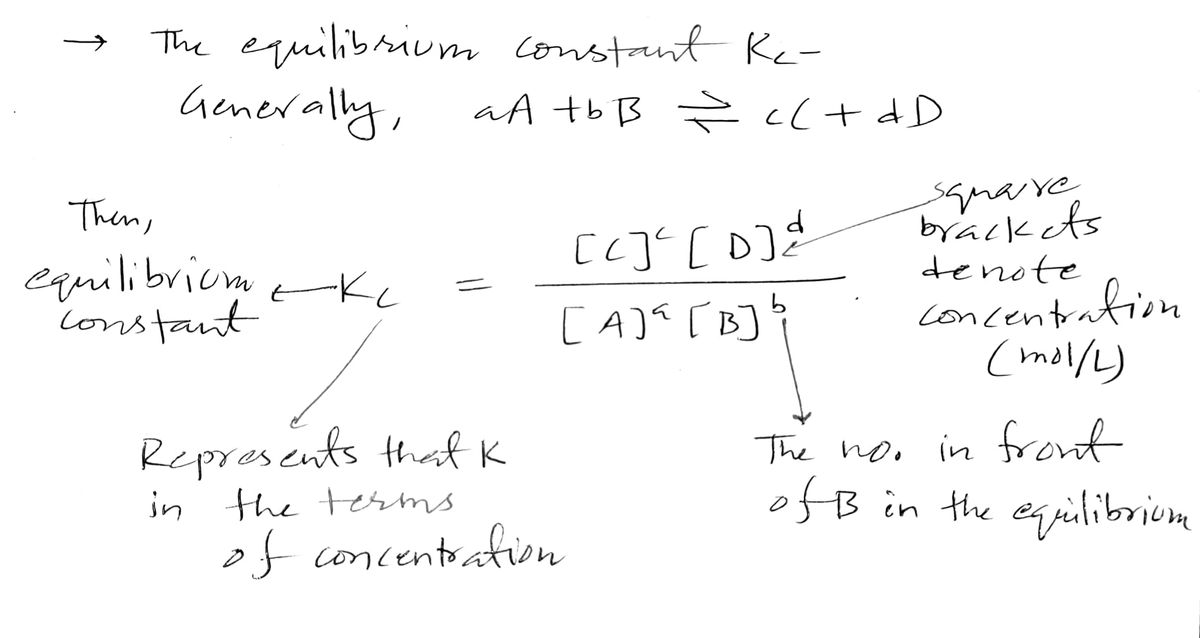 → The equilibrium constant Kc–
Generally, aA + bB ⇌ cC + dD
Then,
equilibrium constant ← Kc = [C]^c [D]^d / [A]^a [B]^b
square
brackets
denote
concentration
(mol/L)
Represents that K
in the terms
of concentration
The no. in front
of B in the equilibrium